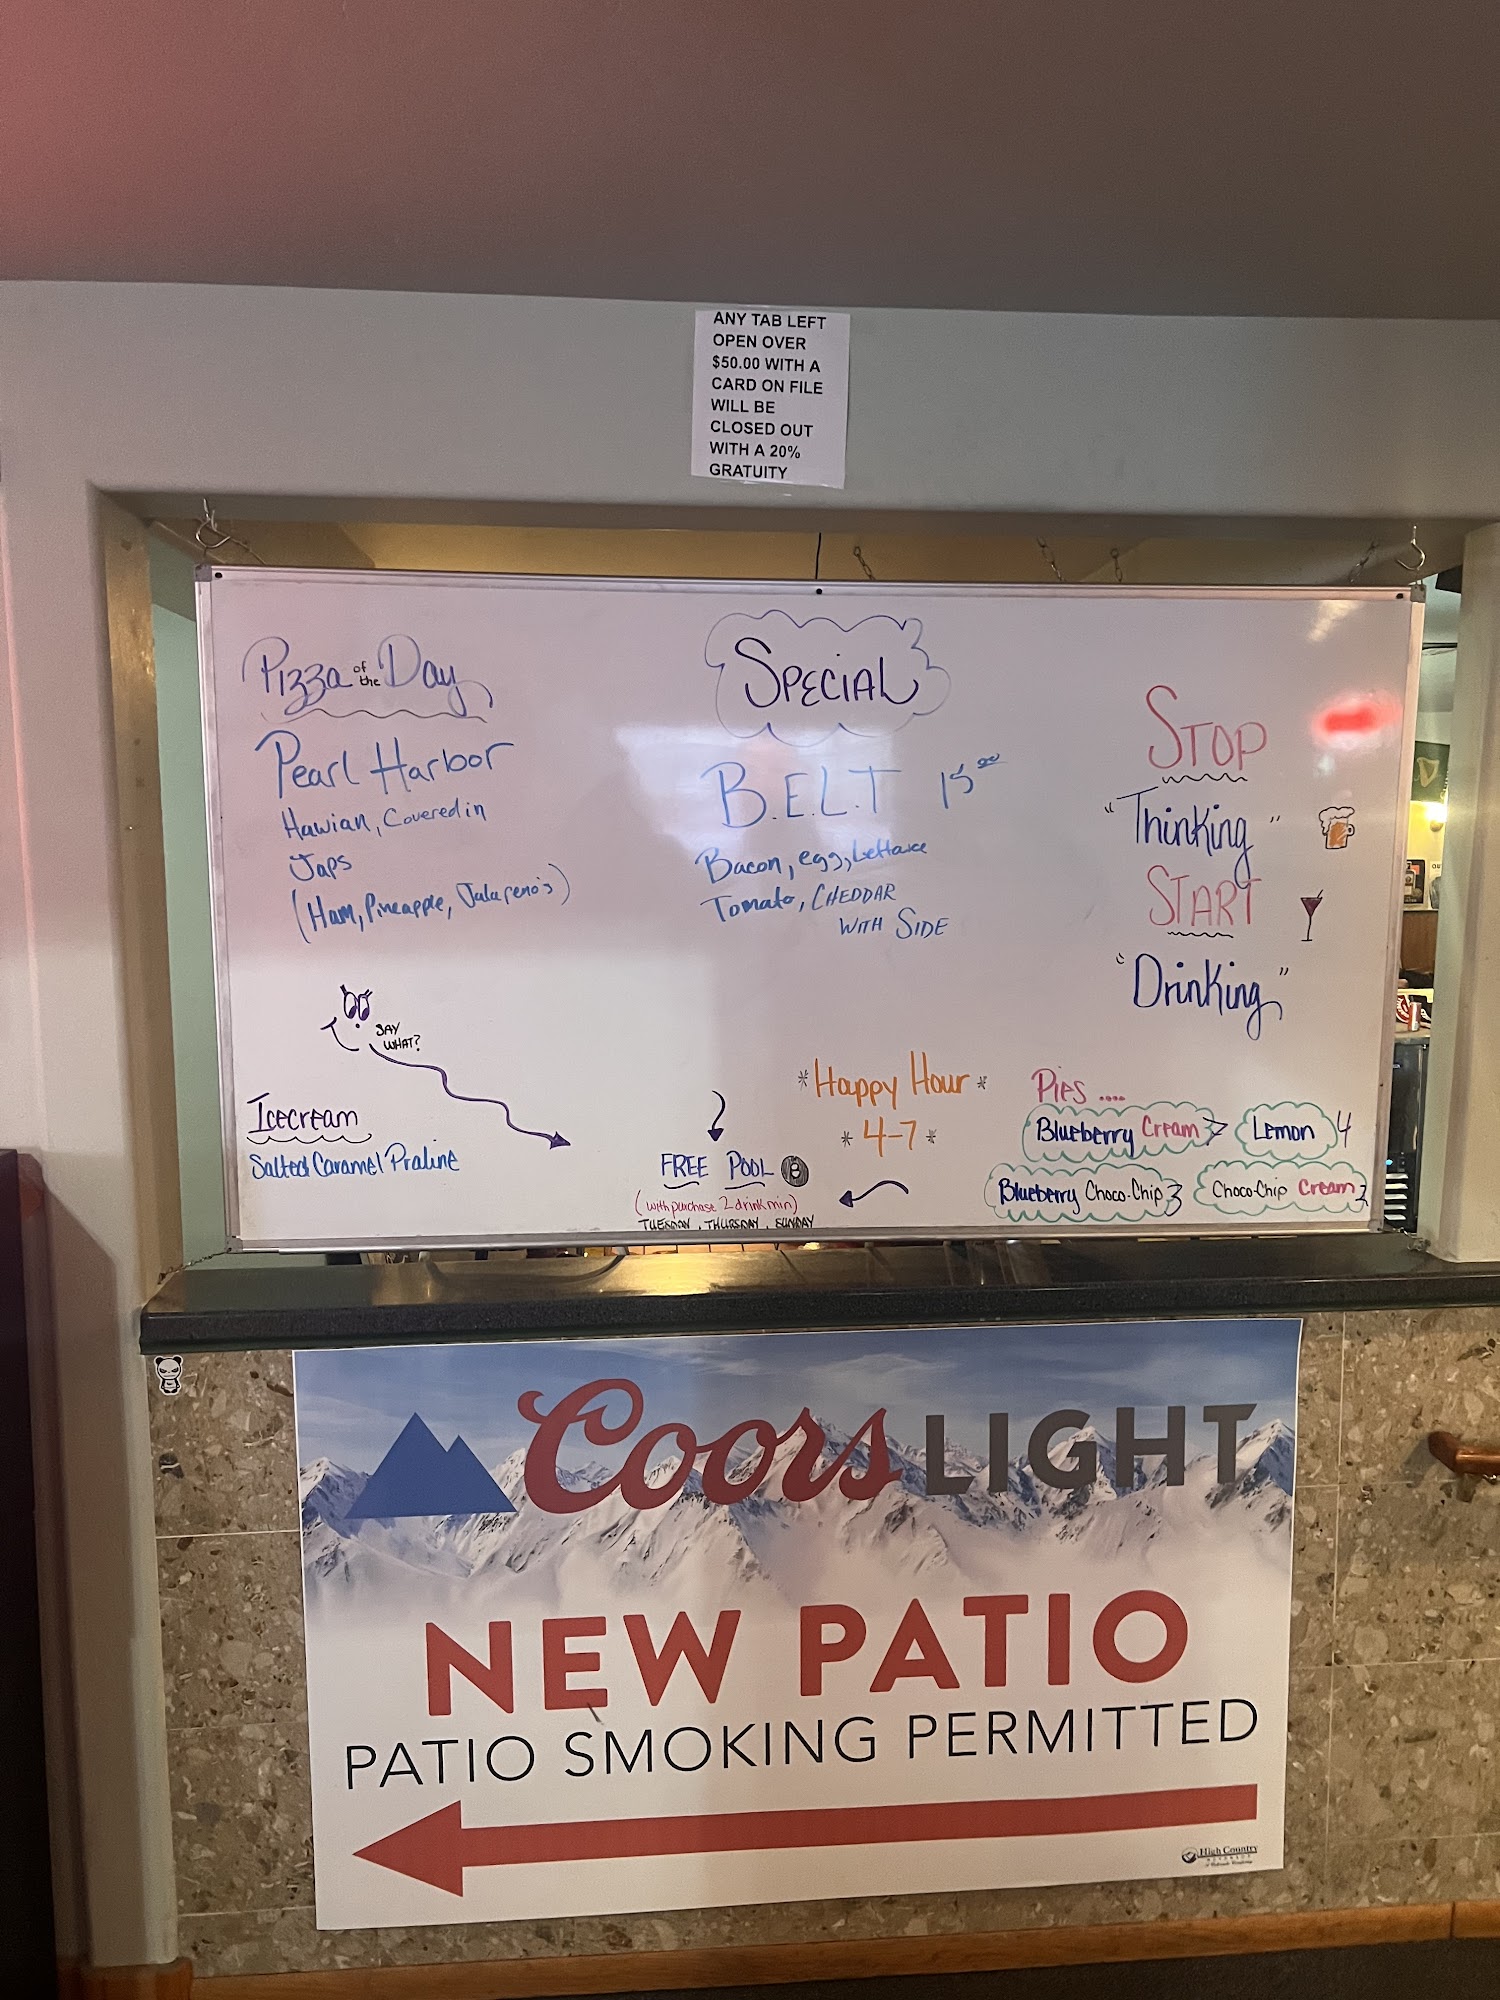 ANY TAB LEFT
OPEN OVER
$50.00 WITH A
CARD ON FILE
WILL BE
CLOSED OUT
WITH A 20%
GRATUITY
Pizza of the Day
Pearl Harbor
Hawian, Covered in
Japs
(Ham, Pineapple, Jalapeno's)
SAY
WHAT?
Icecream
Salted Caramel Praline
SPECIAL
B.E.L.T 15.00
Bacon, egg, Lettuce
Tomato, CHEDDAR
WITH SIDE
STOP
"Thinking"
START
"Drinking"
*Happy Hour*
*4-7*
FREE POOL 8
(with purchase 2 drink min)
TUESDAY, THURSDAY, SUNDAY
Pies ....
Blueberry Cream 7
Lemon 4
Blueberry Choco-Chip 3
Choco-Chip Cream 2
Coors LIGHT
NEW PATIO
PATIO SMOKING PERMITTED
High Country